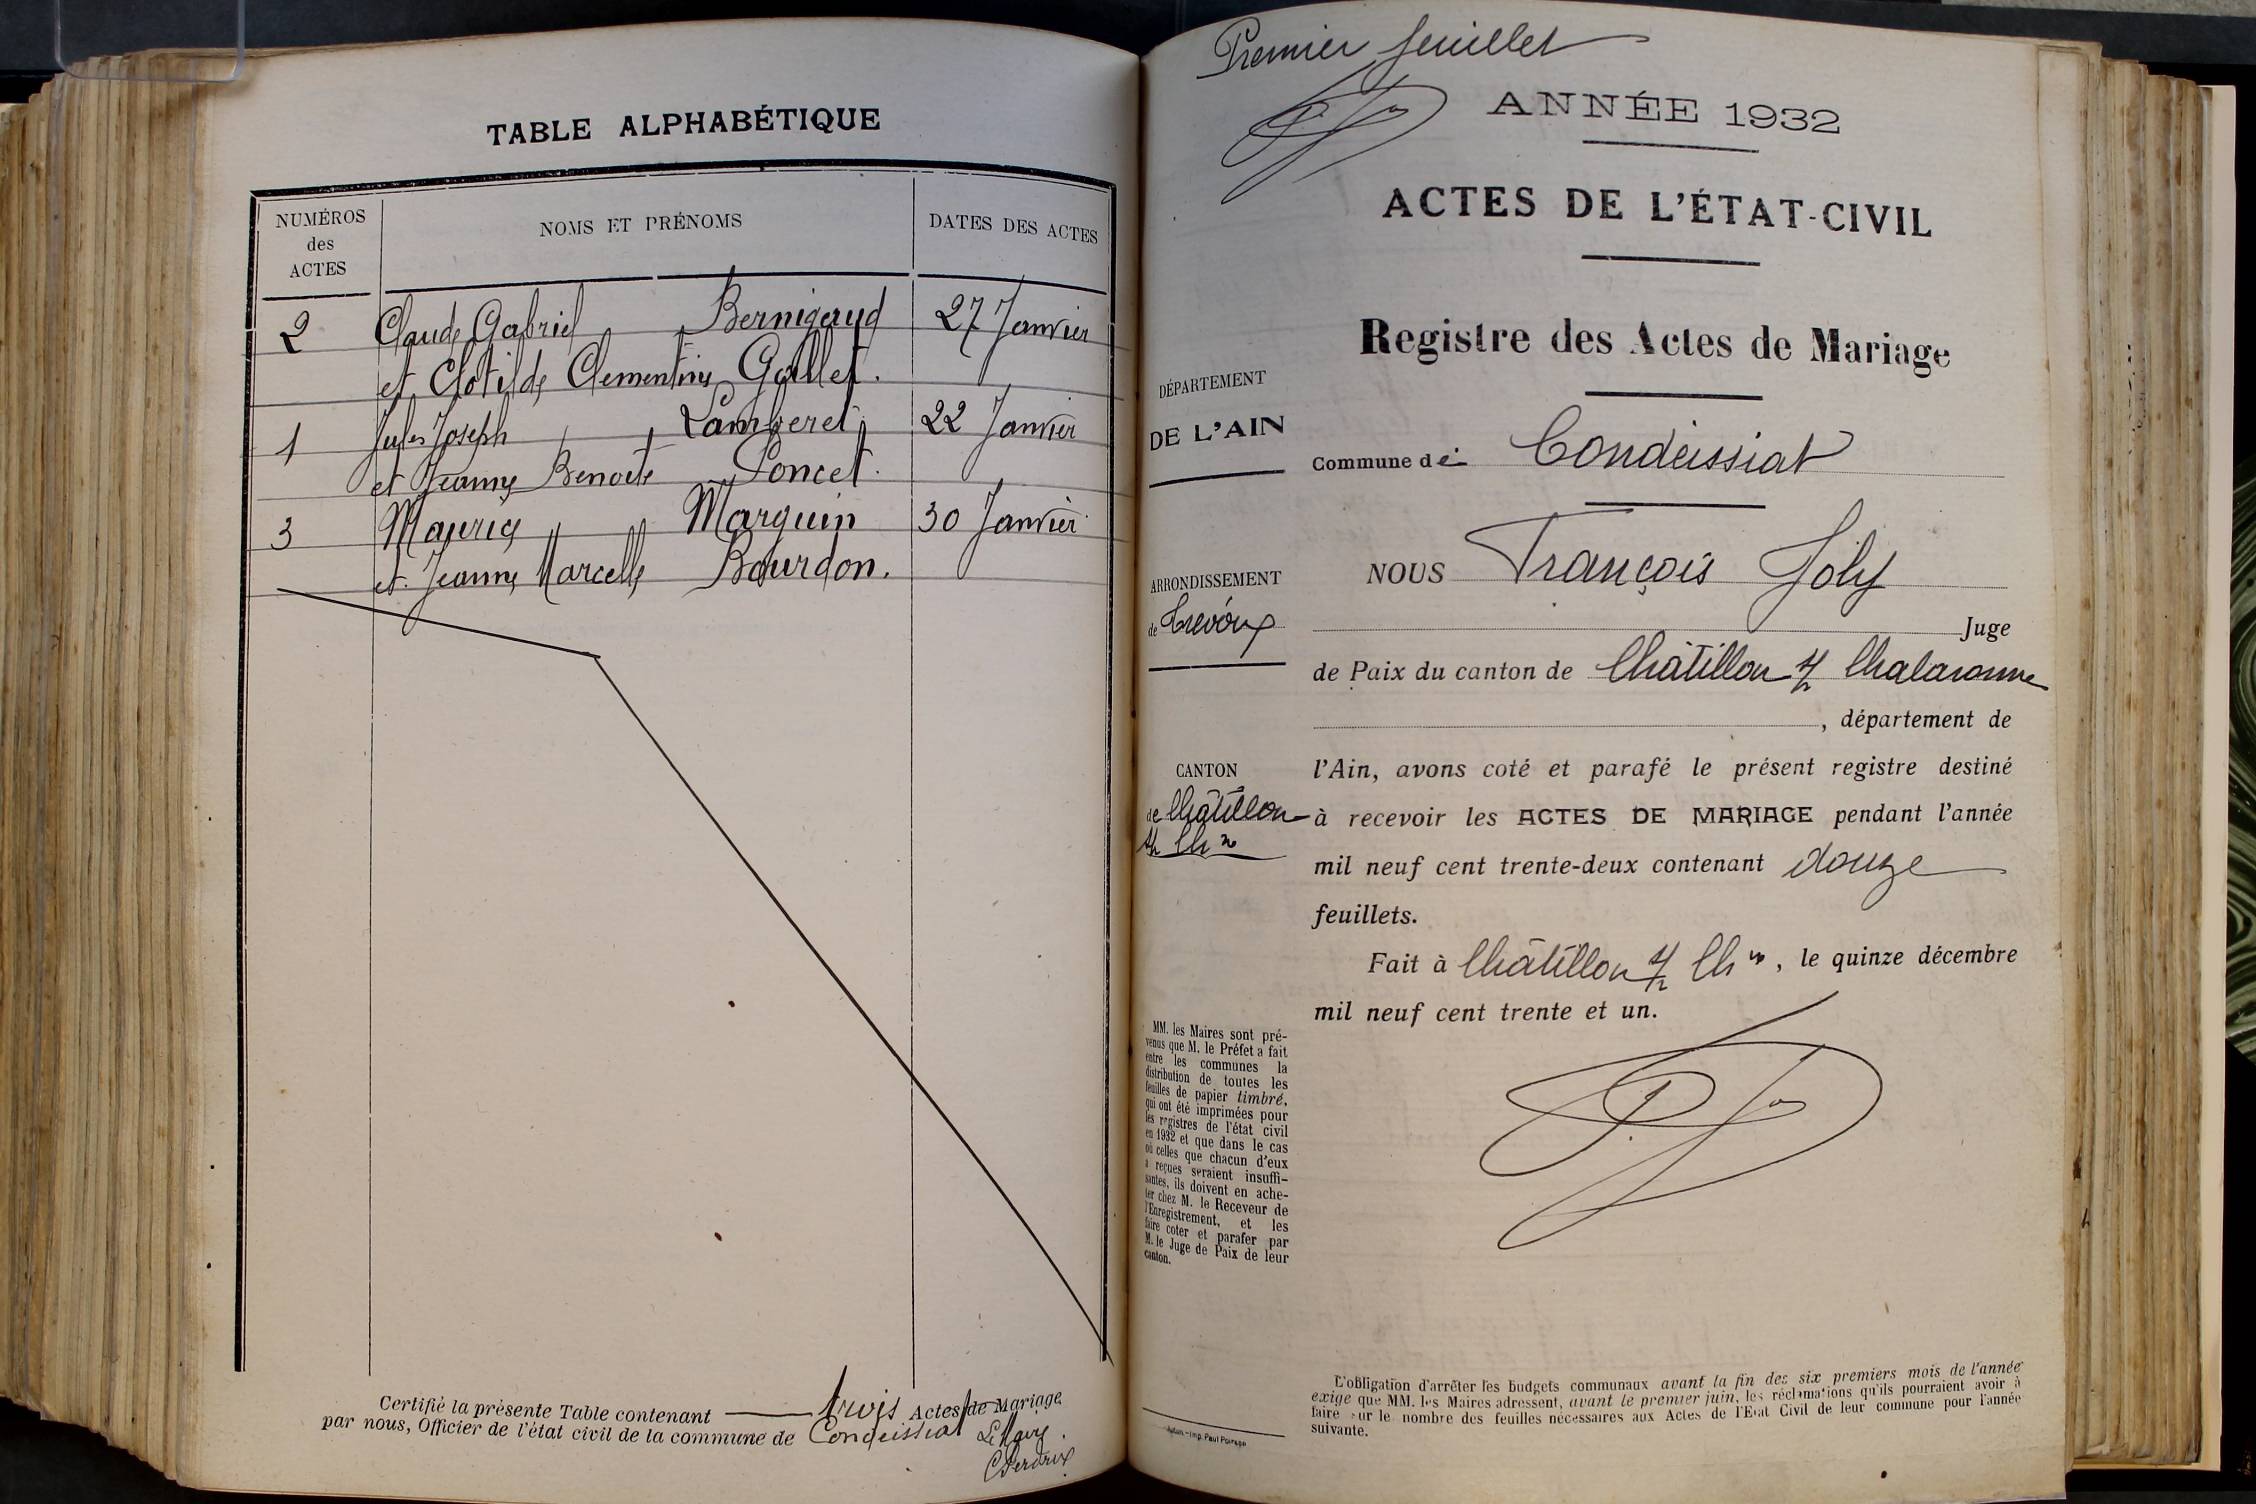 TABLE ALPHABÉTIQUE
NUMÉROS
des
ACTES
NOMS ET PRÉNOMS
DATES DES ACTES
2 Claude Gabriel Bernigaud 27 Janvier
et Clotilde Clementine Gallet.
1 Jules Joseph Lamberet 22 Janvier
et Jeanne Benoite Poncet.
3 Maurice Marguin 30 Janvier
et Jeanne Marcelle Bourdon.
Certifié la présente Table contenant trois Actes de Mariage
par nous, Officier de l'état civil de la commune de Condeissiat
Le Maire.
Perdrix
Premier feuillet
ANNÉE 1932
ACTES DE L'ÉTAT-CIVIL
Registre des Actes de Mariage
DÉPARTEMENT
DE L'AIN
Commune de Condeissiat
NOUS François Joly
ARRONDISSEMENT
de Trévoux
Juge
de Paix du canton de Châtillon s/ Chalaronne
, département de
CANTON
de Châtillon
s/ Ch ne
l'Ain, avons coté et parafé le présent registre destiné
à recevoir les ACTES DE MARIAGE pendant l'année
mil neuf cent trente-deux contenant douze
feuillets.
Fait à Châtillon s/ Ch ne, le quinze décembre
mil neuf cent trente et un.
MM. les Maires sont pré-
venus que M. le Préfet a fait
entre les communes la
distribution de toutes les
feuilles de papier timbré,
qui ont été imprimées pour
les registres de l'état civil
en 1932 et que dans le cas
où celles que chacun d'eux
a reçues seraient insuffi-
santes, ils doivent en ache-
ter chez M. le Receveur de
l'Enregistrement, et les
faire coter et parafer par
M. le Juge de Paix de leur
canton.
L'obligation d'arrêter les budgets communaux avant la fin des six premiers mois de l'année
exige que MM. les Maires adressent, avant le premier juin, les réclamations qu'ils pourraient avoir à
faire sur le nombre des feuilles nécessaires aux Actes de l'Etat Civil de leur commune pour l'année
suivante.
Imp. Paul